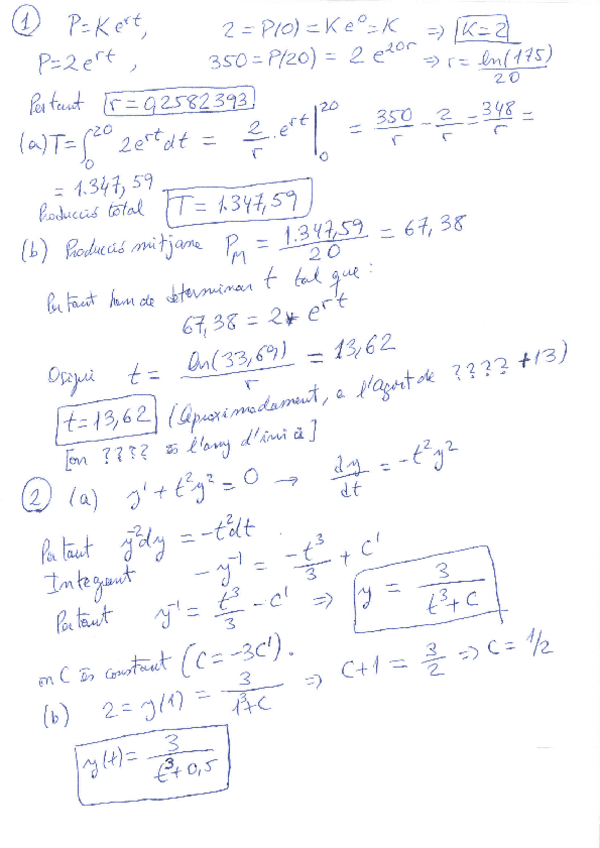 ① P=Ke^{rt}, 2=P(0)=Ke^0=K ⇒ K=2
P=2e^{rt}, 350=P(20)=2e^{20r} ⇒ r=ln(175)/20
Pertant r=0,2582393
(a) T=∫_0^{20} 2e^{rt}dt = 2/r·e^{rt}|_0^{20} = 350/r - 2/r = 348/r =
= 1.347,59
Producció total T=1.347,59
(b) Producció mitjana P_M = 1.347,59/20 = 67,38
Pertant hem de determinar t tal que:
67,38=2*e^{rt}
O sigui t= ln(33,69)/r = 13,62
t=13,62 (Aproximadament, a l'Agost de ???? +13)
[on ???? és l'any d'inici]
② (a) y'+t²y²=0 → dy/dt=-t²y²
Pertant y^{-2}dy=-t²dt.
Integrant -y^{-1}=-t³/3+C'
Pertant y^{-1}=t³/3-C' ⇒ y=3/(t³+C)
on C és constant (C=-3C').
(b) 2=y(1)=3/(1³+C) ⇒ C+1=3/2 ⇒ C=1/2
y(t)=3/(t³+0,5)